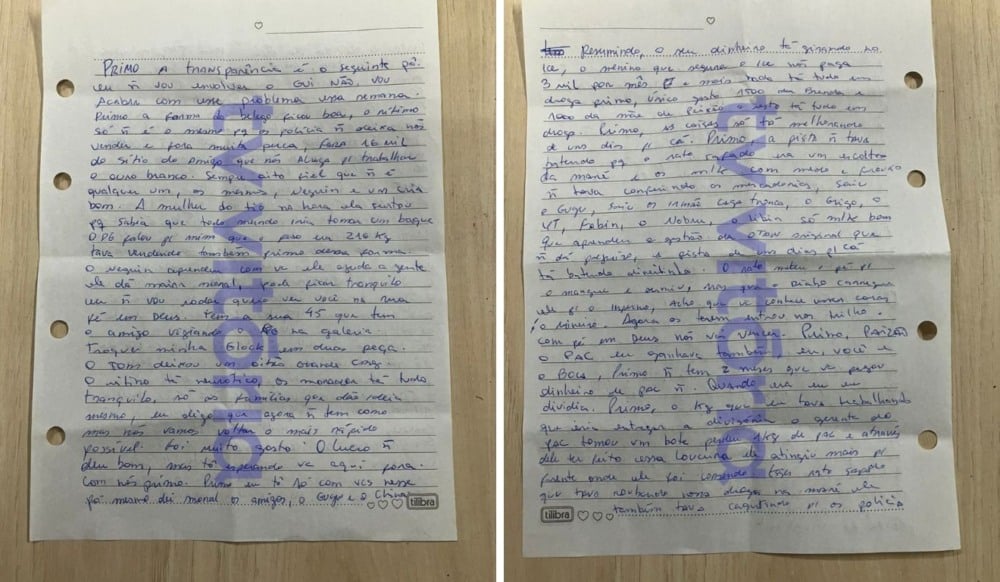 PRIMO A TRANSPARÊNCIA É O SEGUINTE pô.
eu ñ vou envolver o GUI NÃO. VOU
Acabar com esse problema essa semana.
Primo a farm do Belego ficou boa, o ritimo
só ñ é o mesmo pq os polícia ñ deixa nós
vender e fora muita perca, fora 16 mil
do sítio do amigo que nós aluga p/ trabalhar
o ouro branco. Sempre
qualquer um, os mesmos, neguin e um cria
bom. A mulher do tio na hora ela
pq sabia que todo mundo iria tomar um baque
O PG falou p/ mim que o peso era 210 Kg
tava vendendo também primo dessa forma.
O neguin aprendeu com vc ele ajuda a gente
ele dá maior moral, pode ficar tranquilo
eu ñ vou rodar quero ver você na rua
fé em Deus. Tem a sua 45 que tem
o amigo vigiando o na galeria.
Troquei minha Glock em duas peça.
O TOM deixou um oitão
O nitino tá neurótico, os morador tá tudo
tranquilo, só as famílias que dão ideia
mesmo, eu digo que agora ñ tem como
mas nós vamos voltar o mais rápido
possível foi muito gasto! O lucro ñ
deu bom, mas tô esperando vc aqui fora.
Com nós primo. Primo eu tô com vcs nesse
pô mano, dei moral o amigos, o Gugu e o China
tilibra
Resumindo, o seu dinheiro tá girando no
Ice, o menino que segura o Ice nós paga
3 mil por mês e mais nada tá tudo em
droga primo, único gasto 1500 da Brenda e
1000 da mãe de Peixão o resto tá tudo em
droga. Primo, as coisas só tá melhorando
de uns dias p/ cá. Primo, a pista ñ tava
batendo pq o rato safado era um escolta
da maré e os mlk com medo e
ñ tava conferindo as mercadorias, saiu
o Gugu, saiu o irmão caga tranca, o Grigo, o
YT, Fabin, o Nobru, o Libin só mlk bom
que aprendeu a gestão da OTAN original que
ñ dá prejuízo, a pista de uns dias p/ cá
tá batendo direitinho. O rato meteu o pé p/
o mangue e sumiu, mas que o Diabo carregue
ele p/ o inferno, Acho que vc conhece esses caras
o mineiro. Agora os trem entrou nos trilho.
com fé em Deus nós vai vencer. Primo, PAIZÃO
o PAC eu ganhava também eu, você e
o Boca, Primo ñ tem 2 meses que vc pegou
dinheiro de pac ñ. Quando era eu eu
dividia. Primo, o Kg que eu tava trabalhando
que iria entregar a divisória o gerente do
pac tomou um bote perdeu 1Kg de pac e através
dele ter feito essa loucura ele atingiu mais p/
frente onde ele foi comendo Esse rato safado
que tava roubando nossa drogas na maré ele
também tava caguetando p/ os polícia
tilibra
tvvitória
tvvitória